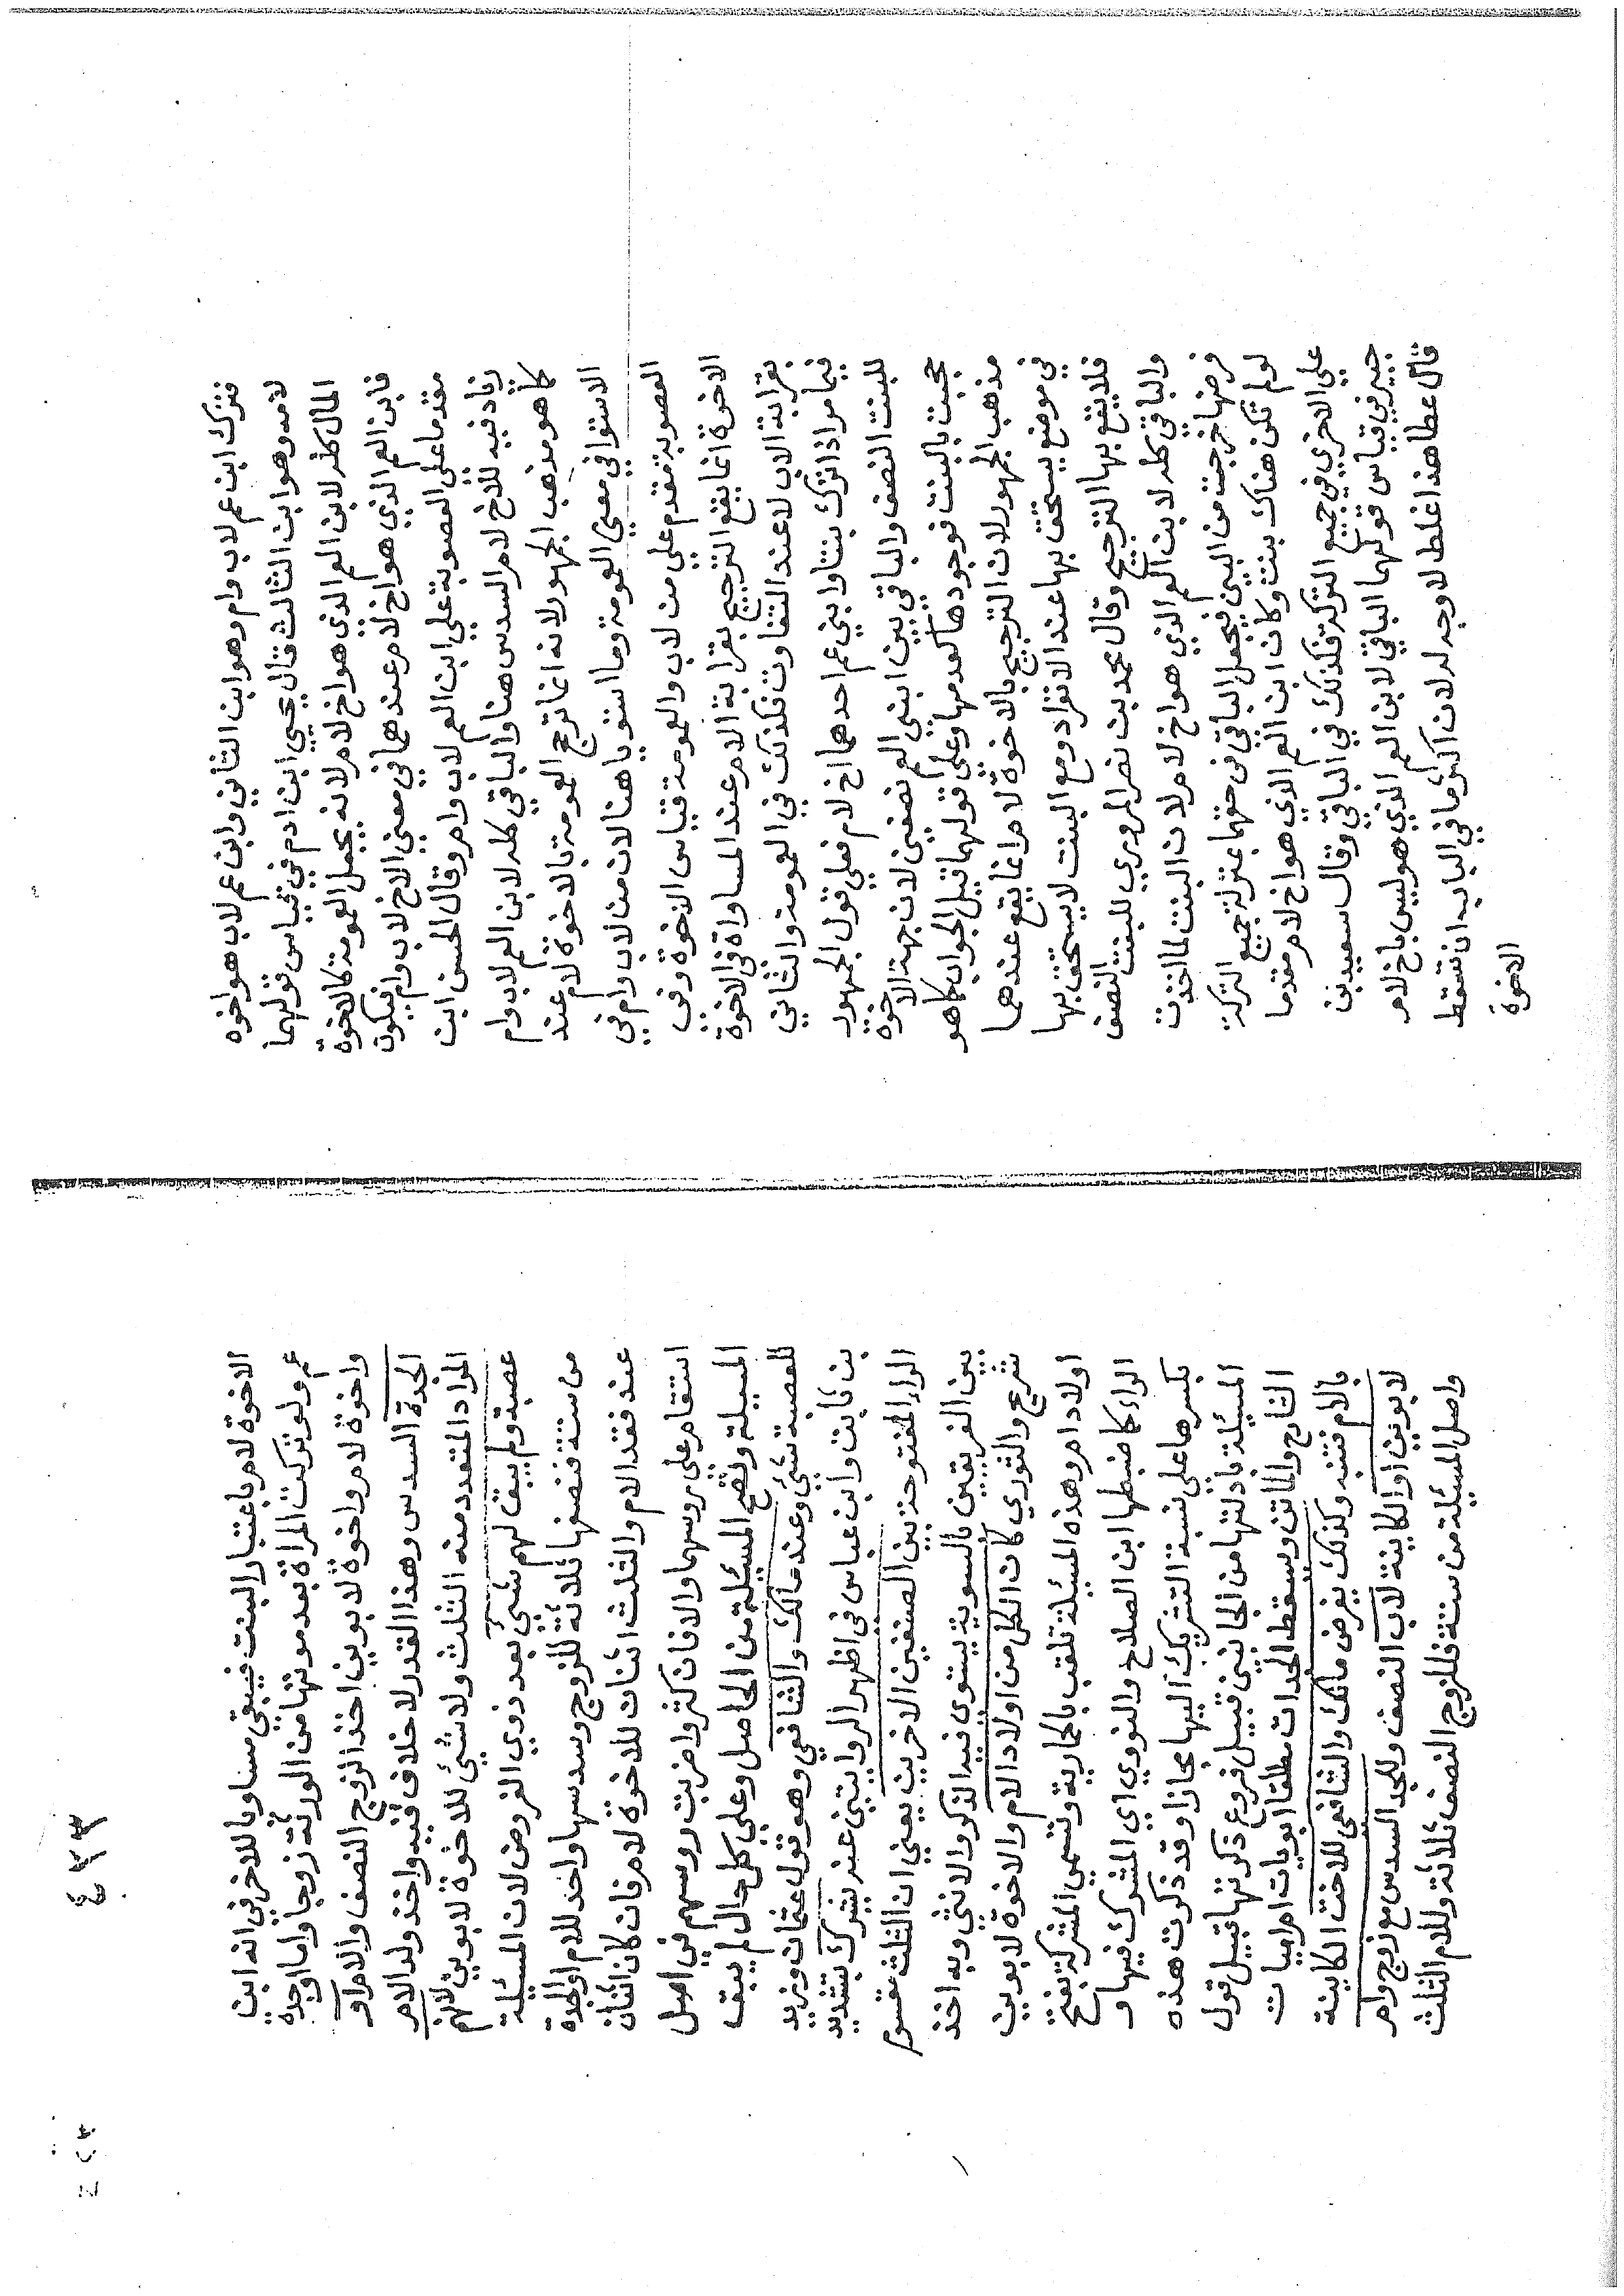 فترك ابن عم لاب وام وهو ابن الثاني وابن عم لاب هو اخوه
لامه وهو ابن الثالث قال يحيي ابن ادم في قياس قولهما
المال كله لابن العم الذي هو اخ لام لانه يجعل العمومة كالاخوة
فابن العم الذي هو اخ لام عندهما في معني الاخ لاب وام فيكون
مقدما على العصوبة علي ابن العم لاب وام وقال الحسن ابن
زياد فيه للاخ لام السدس هنا والباقي كله لابن العم لاب وام
كما هو مذهب الجمهور لانه انما ترجح العمومة بالاخوة لام عند
الاستوا في معني العمومة وما استويا هنا لان من لاب وام في
العصوبة مقدم علي من لاب والعمومة قياس الاخوة وفي
الاخوة انما يقع الترجيح بقرابة الام عند المساواة في الاخوة
بقرابة الاب لا عند التفاوت فكذلك في العمومة والثاني
فيما مر اذا ترك بنتا وابني عم احدهما اخ لام فعلي قول الجمهور
للبنت النصف والباقي بين ابني العم نصفين لان جهة الاخوة
حجبت بالبنت فوجودها كعدمها وعلي قولهما قيل الجواب كما هو
مذهب الجمهور لان الترجيح بالاخوة لام انما يقع عندهما
في موضع يستحق بها عند الانفراد ومع البنت لا يستحق بها
فلا يقع بها الترجيح وقال محمد بن نصر المروزي للبنت النصف
والباقي كله لابن العم الذي هو اخ لام لان البنت لما اخذت
فرضها خرجت من البين فيجعل الباقي في حقهما بمنزلة جميع التركة
لو لم تكن هناك بنت وكان ابن العم الذي هو اخ لام مقدما
علي الاخر في جميع التركة فكذلك في الباقي وقال سعيد بن
جبير في قياس قولهما الباقي لابن العم الذي هو ليس باخ لام
قال عطا هذا غلط لا وجه له لان اكثر ما في الباب ان تسقط
الاخوة
٤٣٣
الاخوة لام باعتبار البنت فيبقي مساويا للاخر في انه ابن
عم ولو تركت المراة بعد موتها من الورثة زوجا واما او جدة
واخوة لام واخوة لابوين اخذ الزوج النصف والام او
الجدة السدس وهذا القدر لا خلاف فيه واخذ ولد الام
المراد المتعدد منه الثلث ولا شيئ للاخوة لابوين لانهم
عصبة ولم يبق لهم شيئ بعد ذوي الفروض لان المسيلة
من ستة فنصفها ثلاثة للزوج وسدسها واحد للام او الجدة
عند فقد الام والثلث اثنان للاخوة لام فان كان اثنان
استقام على روسهما والا فان كثروا ضربت روسهم في اصل
المسيلة وتصح المسيلة من الحاصل وعلي كل حال لم يبق
للعصبة شيئ وعند مالك والشافعي وهو قول عثمان وزيد
بن ثابت وابن عباس في اظهر الروايتين عنه يشرك بتشديد
الراء المفتوحة بين الصنفين الاخرين يعني ان الثلث مقسوم
بين الفريقين بالسوية يستوي فيه الذكر والانثي وبه اخذ
شريح والثوري كان الكل من اولاد الام والاخوة لابوين
اولاد ام وهذه المسيلة تلقب بالحمارية وتسمي المشركة بفتح
الراء كما ضبطها ابن الصلاح والنووي اي المشرك فيها و
بكسرها على نسبة التشريك اليها مجازا وقد ذكرت هذه
المسيلة بادلتها من الجانبين قبيل فروع ذكرتها قبيل قول
الشارح والماتن وتسقط الجدات مطلقا ابويات ام اميات
بالام فتنبه وكذلك يفرض مالك والشافعي للاخت الكاينة
لابوين او الكاينة لاب النصف وللجد السدس مع زوج وام
واصل المسيلة من ستة فللزوج النصف ثلاثة وللام الثلث